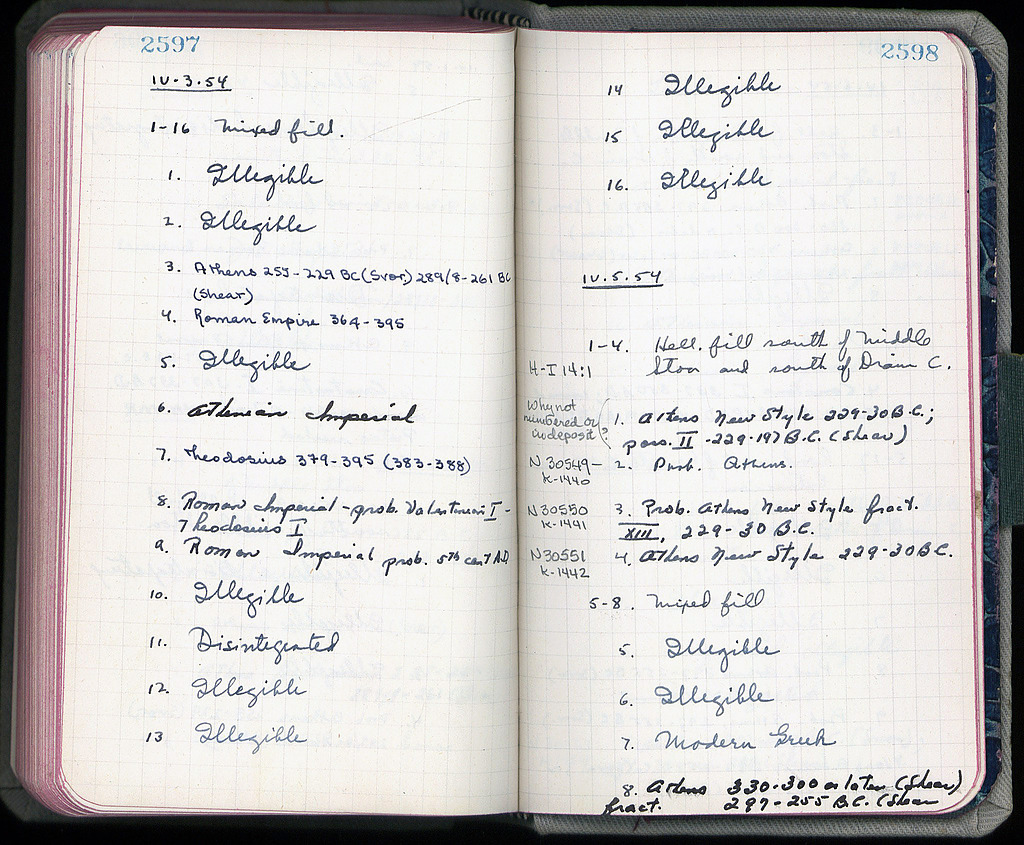 2597
IV.3.54
1-16 mixed fill.
1. Illegible
2. Illegible
3. Athens 255-229 BC (Svor.) 289/8-261 BC
(Shear)
4. Roman Empire 364-395
5. Illegible
6. Athenian Imperial
7. Theodosius 379-395 (383-388)
8. Roman Imperial - prob. Valentinian I -
Theodosius I
9. Roman Imperial prob. 5th cent A.D.
10. Illegible
11. Disintegrated
12. Illegible
13 Illegible
2598
14 Illegible
15 Illegible
16. Illegible
IV.5.54
1-4. Hell. fill south of Middle
Stoa and south of Drain C.
H-I 14:1
Why not
numbered or
in deposit ?
1. Athens New Style 229-30 B.C.;
poss. II - 229-197 B.C. (Shear)
N 30549- 2. Prob. Athens.
K-1440
N 30550 3. Prob. Athens New Style fract.
K-1441 XIII, 229-30 B.C.
N 30551 4. Athens New Style 229-30 B.C.
K-1442
5-8. mixed fill
5. Illegible
6. Illegible
7. Modern Greek
8. Athens 330-300 or later (Shear)
fract. 297-255 B.C. (Shear